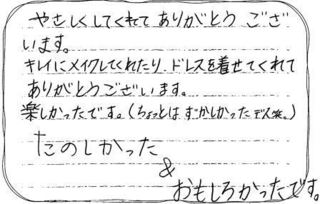 やさしくしてくれて ありがとう ござ
います。
キレイにメイクしてくれたり、ドレスを着せてくれて
ありがとうございます。
楽しかったです。(ちょっとはずかしかったデス笑。)
たのしかった
&
おもしろかったです。